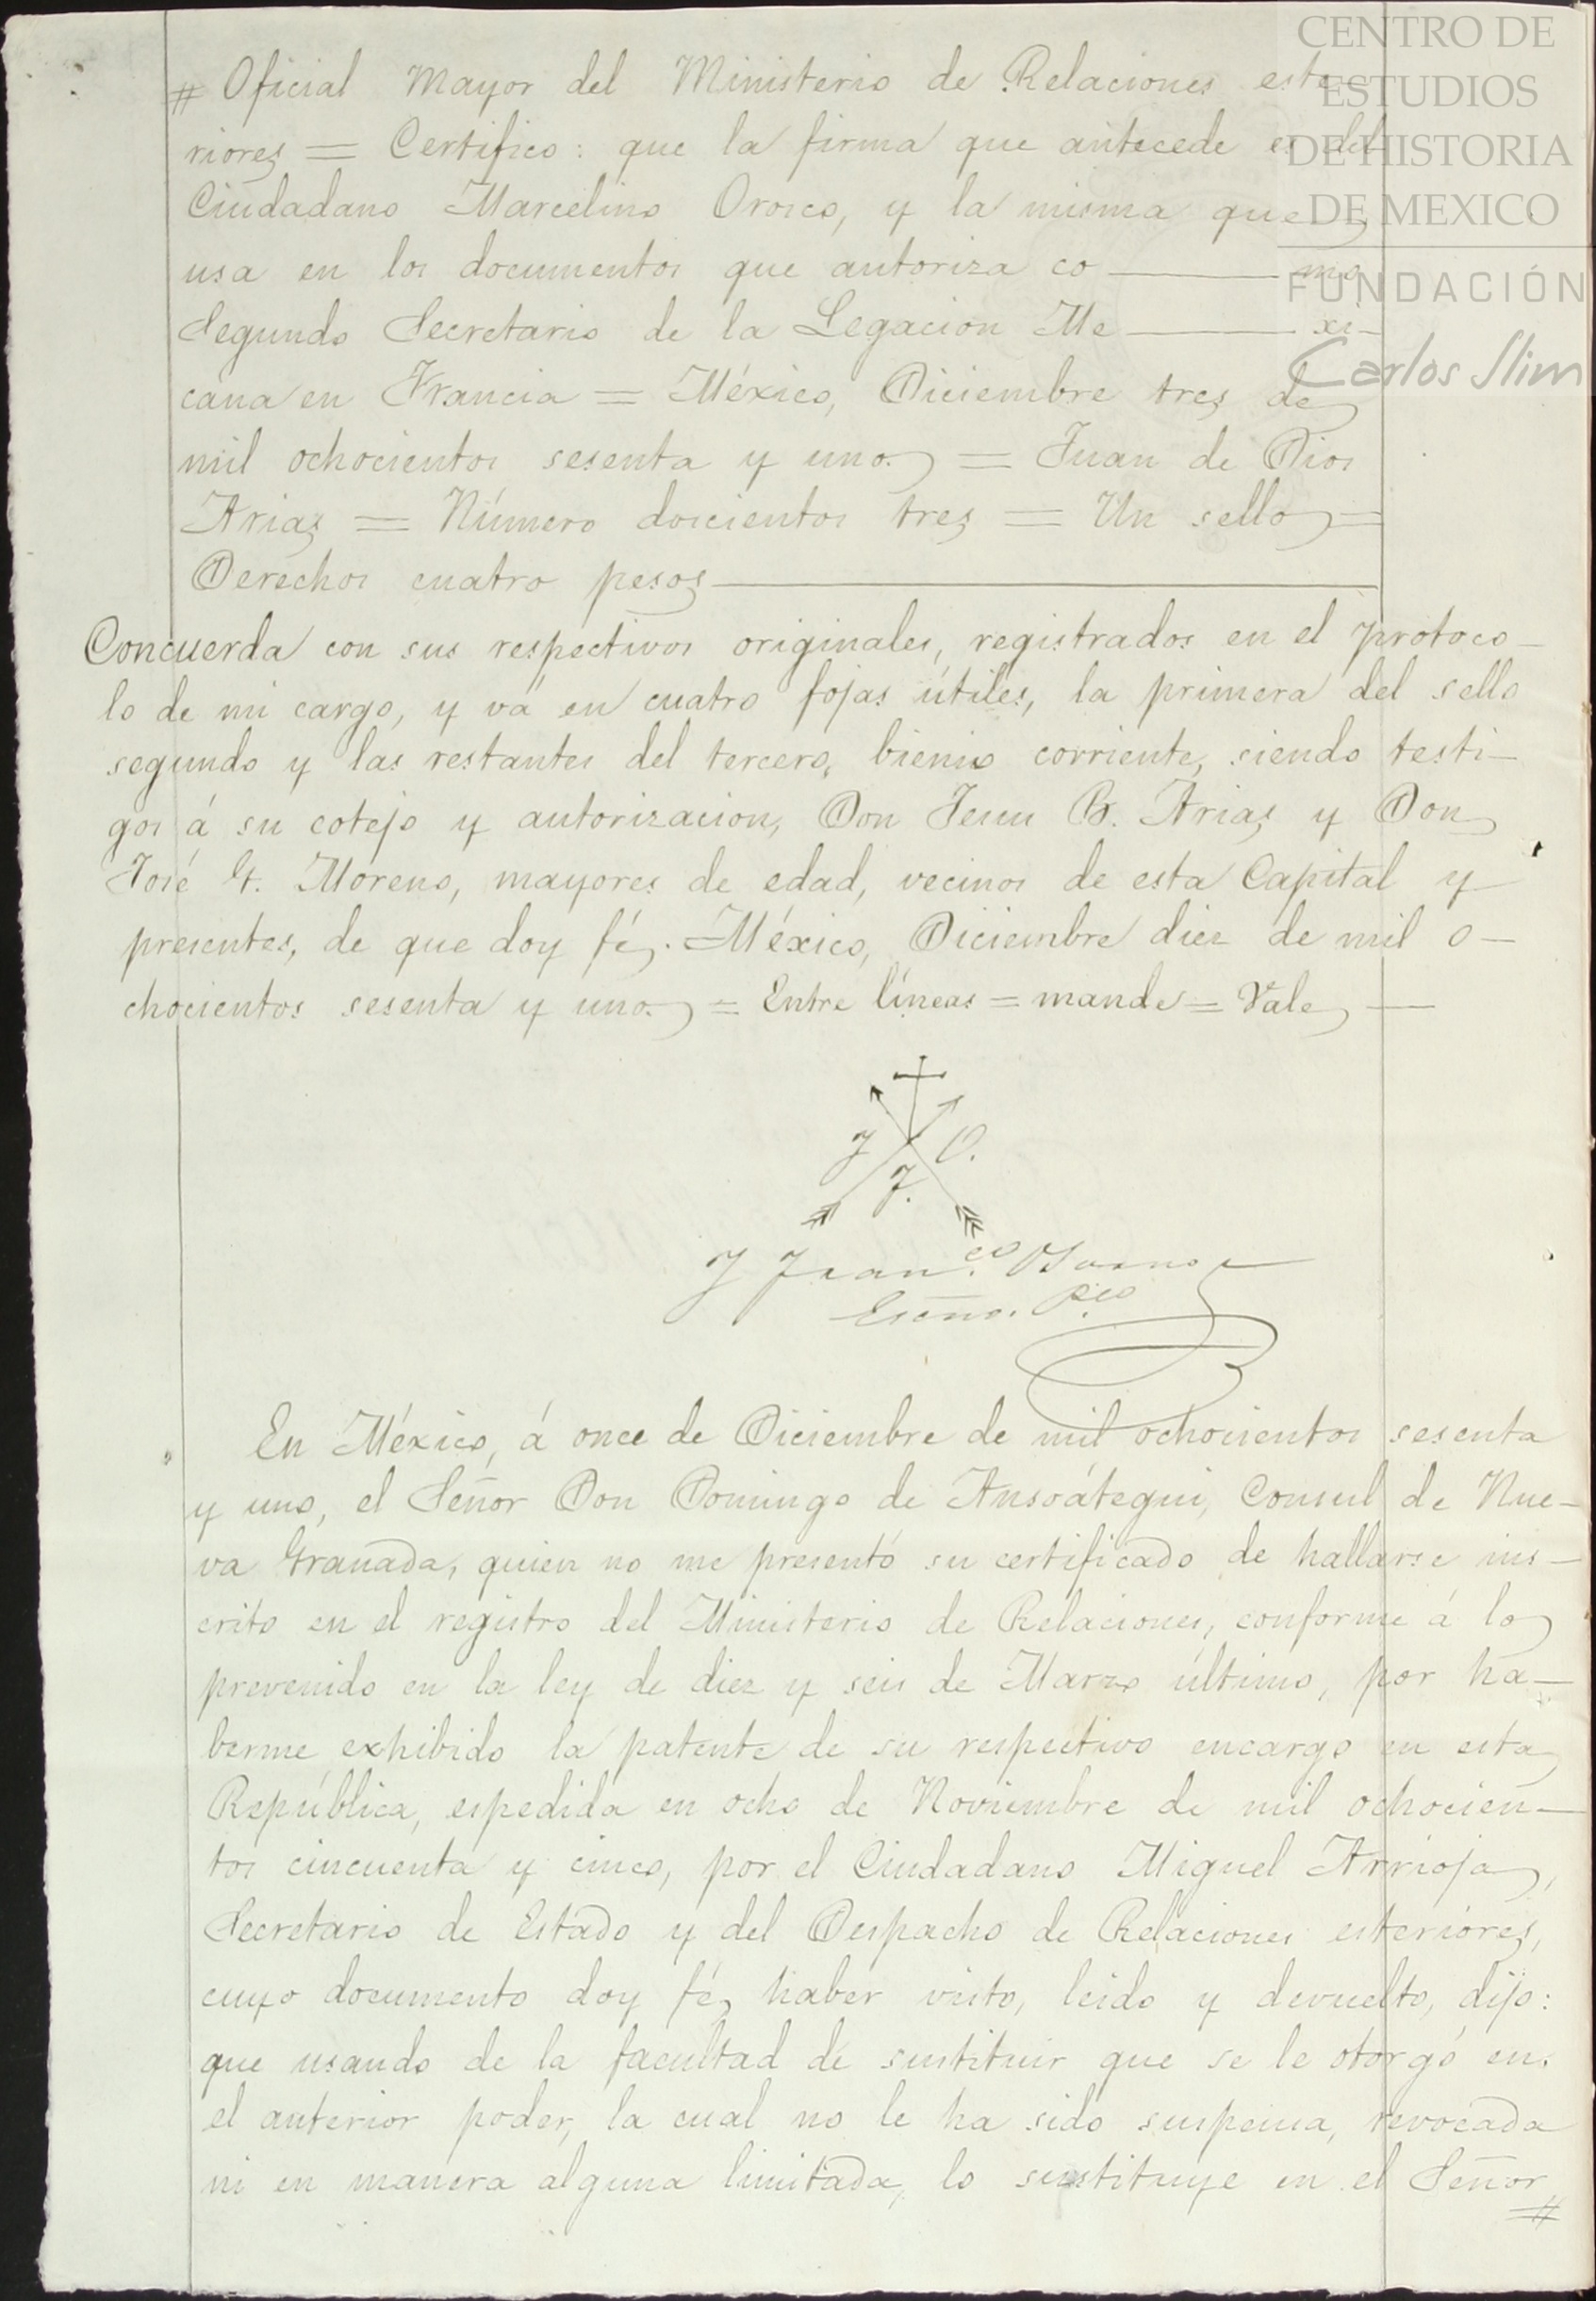 # Oficial Mayor del Ministerio de Relaciones este-
riores = Certifico: que la firma que antecede es del
Ciudadano Marcelino Orosco, y la misma que
usa en los documentos que autoriza co——mo
Segundo Secretario de la Legacion Me——xi-
cana en Francia = México, Diciembre tres de
mil ochocientos sesenta y uno. = Juan de Dios
Arias = Número doscientos tres = Un sello =
Derechos cuatro pesos——
Concuerda con sus respectivos originales, registrados en el protoco-
lo de mi cargo, y vá en cuatro fojas útiles, la primera del sello
segundo y las restantes del tercero, bienio corriente, siendo testi-
gos á su cotejo y autorizacion, Don Jesus B. Arias y Don
José G. Moreno, mayores de edad, vecinos de esta Capital y
presentes, de que doy fé. México, Diciembre diez de mil o-
chocientos sesenta y uno. = Entre líneas = mande = Vale —
J O.
J.
En México, á once de Diciembre de mil ochocientos sesenta
y uno, el Señor Don Domingo de Ansoátegui, Consul de Nue-
va Granada, quien no me presentó su certificado de hallarse ins-
crito en el registro del Ministerio de Relaciones, conforme á lo
prevenido en la ley de diez y seis de Marzo último, por ha-
berme exhibido la patente de su respectivo encargo en esta
República, espedida en ocho de Noviembre de mil ochocien-
tos cincuenta y cinco, por el Ciudadano Miguel Arrioja,
Secretario de Estado y del Despacho de Relaciones esteriores,
cuyo documento doy fé, haber visto, leido y devuelto, dijo:
que usando de la facultad de sustituir que se le otorgó en
el anterior poder, la cual no le ha sido suspensa, revocada
ni en manera alguna limitada, lo sustituye en el Señor
#
CENTRO DE
ESTUDIOS
DE HISTORIA
DE MEXICO
FUNDACIÓN
Carlos Slim